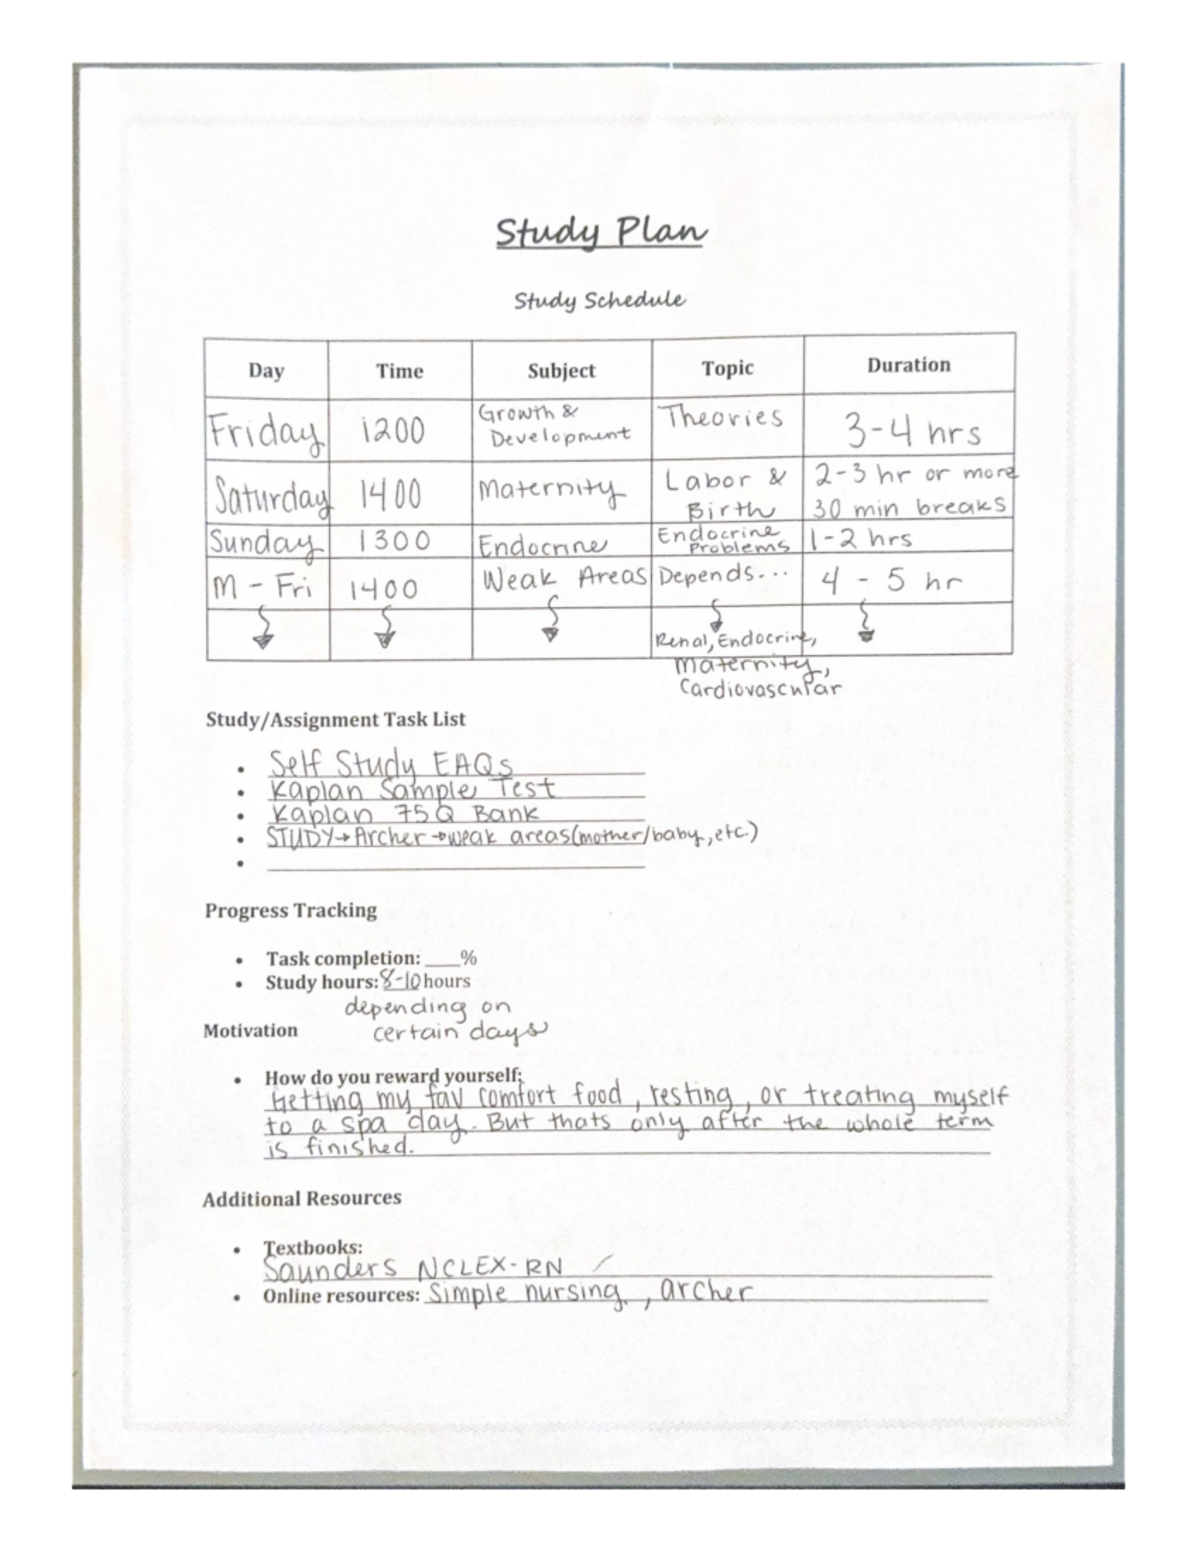 Study Plan
Study Schedule
Day Time Subject Topic Duration
Friday 1200 Growth & Development Theories 3-4 hrs
Saturday 1400 Maternity Labor & Birth 2-3 hr or more 30 min breaks
Sunday 1300 Endocrine Endocrine Problems 1-2 hrs
M - Fri 1400 Weak Areas Depends... 4 - 5 hr
Renal, Endocrine,
Maternity,
Cardiovascular
Study/Assignment Task List
• Self Study EAQs
• Kaplan Sample Test
• Kaplan 75Q Bank
• STUDY→Archer→weak areas(mother/baby,etc.)
•
Progress Tracking
• Task completion: ___%
• Study hours: 8-10 hours
depending on
Motivation certain days
• How do you reward yourself:
Getting my fav comfort food, resting, or treating myself
to a spa day. But thats only after the whole term
is finished.
Additional Resources
• Textbooks:
Saunders NCLEX-RN /
• Online resources: Simple nursing, archer